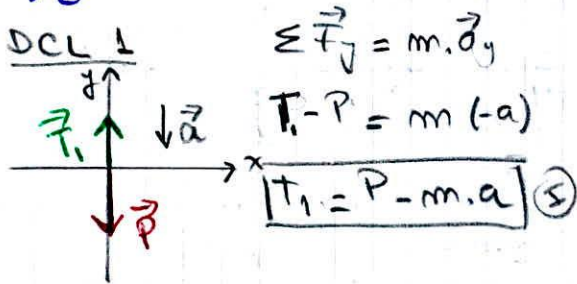 DCL 1
y
T⃗₁
a⃗
x
P⃗
Σ F⃗y = m.a⃗y
T₁ - P = m (-a)
T₁ = P - m.a ①